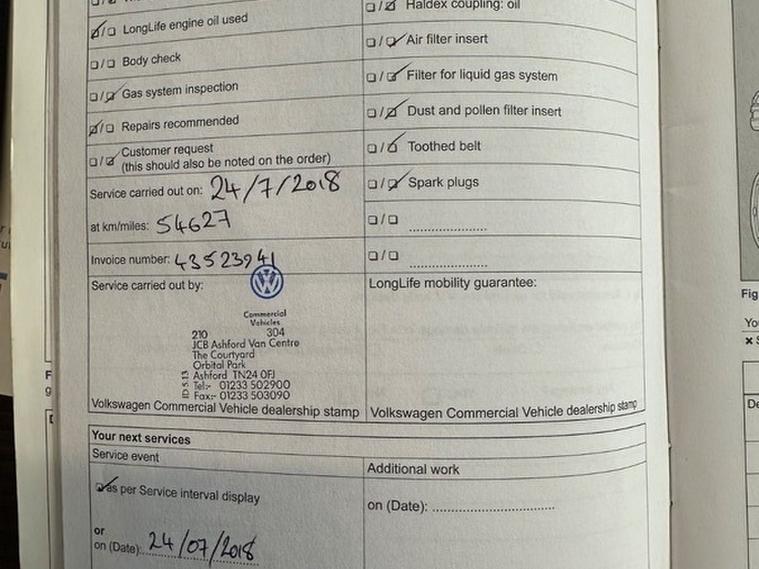 LongLife engine oil used
Body check
Gas system inspection
Repairs recommended
Customer request
(this should also be noted on the order)
Service carried out on: 24/7/2018
at km/miles: 54627
Invoice number: 43523941
Service carried out by:
VW
Commercial
Vehicles
210 304
JCB Ashford Van Centre
The Courtyard
Orbital Park
Ashford TN24 0FJ
Tel:- 01233 502900
Fax:- 01233 503090
Volkswagen Commercial Vehicle dealership stamp
Haldex coupling: oil
Air filter insert
Filter for liquid gas system
Dust and pollen filter insert
Toothed belt
Spark plugs
LongLife mobility guarantee:
Volkswagen Commercial Vehicle dealership stamp
Your next services
Service event
as per Service interval display
or
on (Date): 24/07/2018
Additional work
on (Date):
Fig
You
De